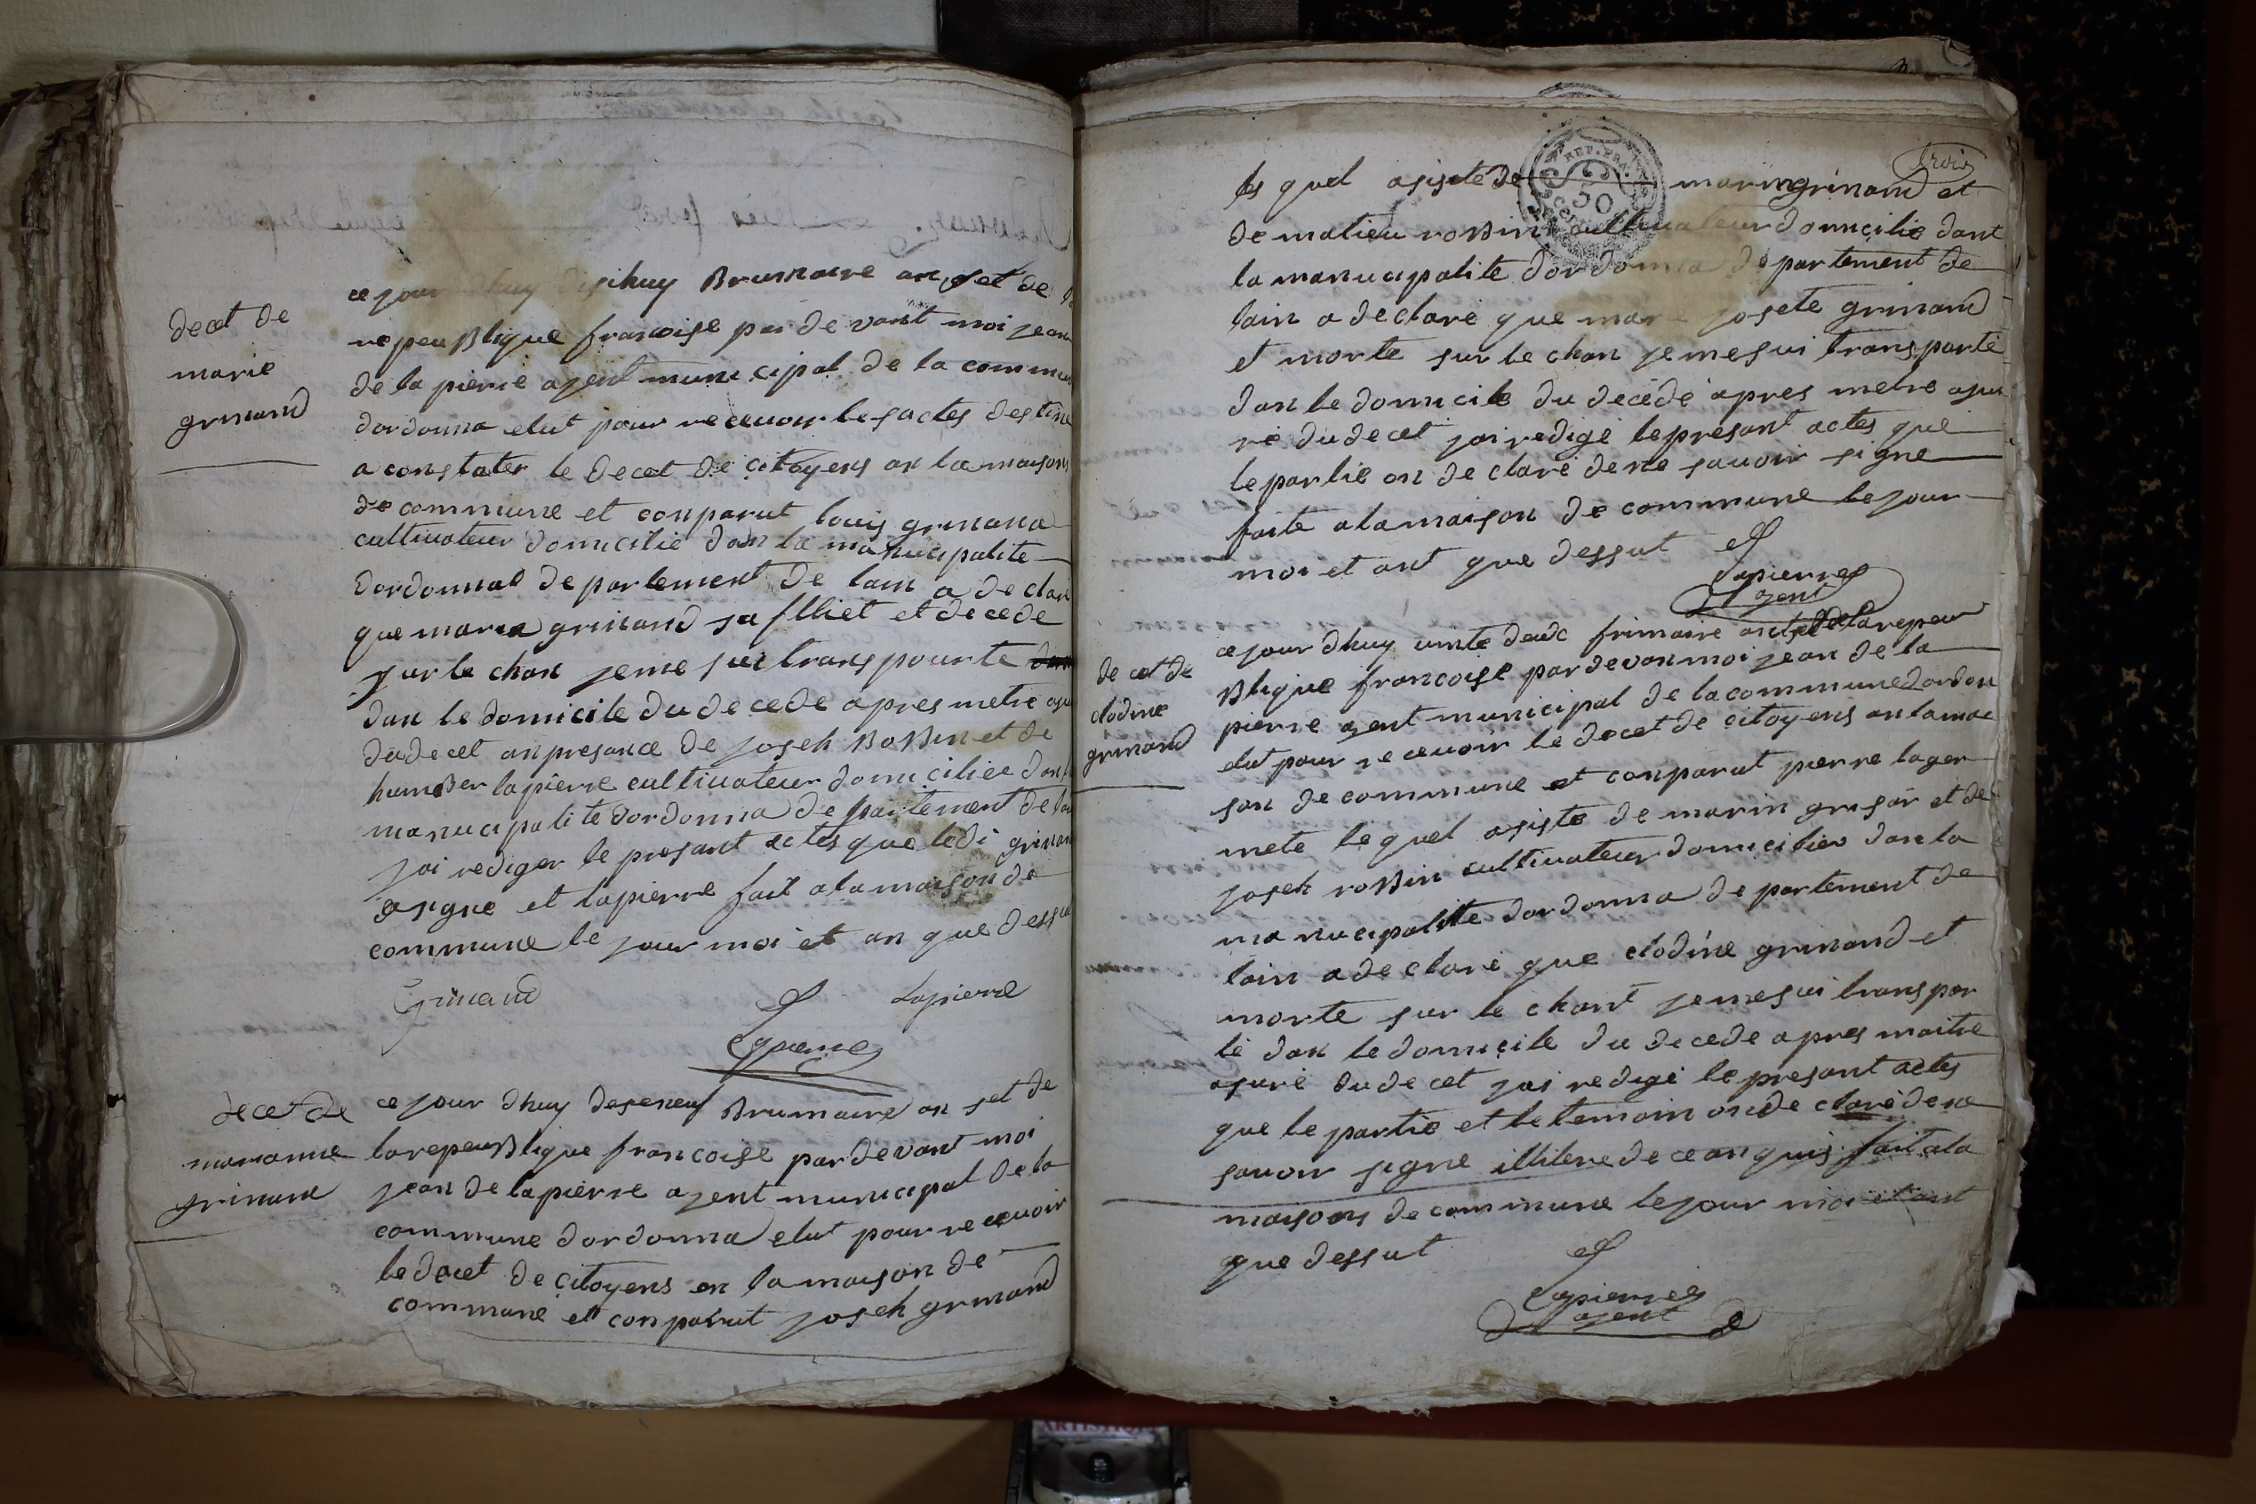 decet de
marie
grinand
ce jour dhuy disihuy Brumaire an set de
repeublique francoise par de vant moi jean
de la pierre agent municipal de la commun
dordonna elut pour recevoir les actes destine
a constater le decet de citoyens an la maison
de commune et conparut louis grinand
cultivateur domicilie dan la manucipalite
dordonnad departement de lain a declare
que maria grinand sa filliet et decede
sur le chan jeme sui transpourte
dan le domicile du decede apres metre asu
du decet an presance de joseh roBin et de
humBer lapierre cultivateur domicilier dan
manucipalite dordonna departement de lain
jai rediger le presant actes que ledi grinan
a signe et lapierre fait a la maison de
commune le jour moi et an que dessu
Grinand
Lapierre
Lapierre
decet de
marianne
grinand
ce jour dhuy deseneuf Brumaire an set de
la repeuBlique francoise par devant moi
jean de lapierre agent municipal de la
commune dordonna elut pour recevoir
le decet de citoyens an la maison de
commune et conparut joseh grinand
trois
REP. FRA.
50
CENT.
les quel asisté de marin grinand et
de matieu roBin cultivateur domicilie dant
la manucipalite dordonna departement de
lain a declaré que marie josete grinand
et morte sur le chan je me sui transporté
dan le domicile du décedé apres metre asu
ré du decet jai redigé le présant actes que
le partie on declaré de ne savoir signe
faite a la maison de commune le jour
moi et ant que dessut
Lapierre
agent
decet de
clodine
grinand
ce jour dhuy vinte deuc frimaire an set de la repeu
Blique francoise par devan moi jean de la
pierre agent municipal de la commune dordon
elut pour recevoir le decet de citoyens an la mai
son de commune et conparut pierre lager
mete lequel asiste de marin et de
joseh roBin cultivateur domicilier dan la
manucipalite dordonna departement de
lain a declaré que clodine grinand et
morte sur le chant je me sui transpor
té dan le domicile du decede apres maitre
asuré du decet jai redigé le presant actes
que le partie et le temoin on declaré de ne
savoir signe illitere de ce anquis fait a la
maison de commune le jour moi et ant
que dessut
Lapierre
agent